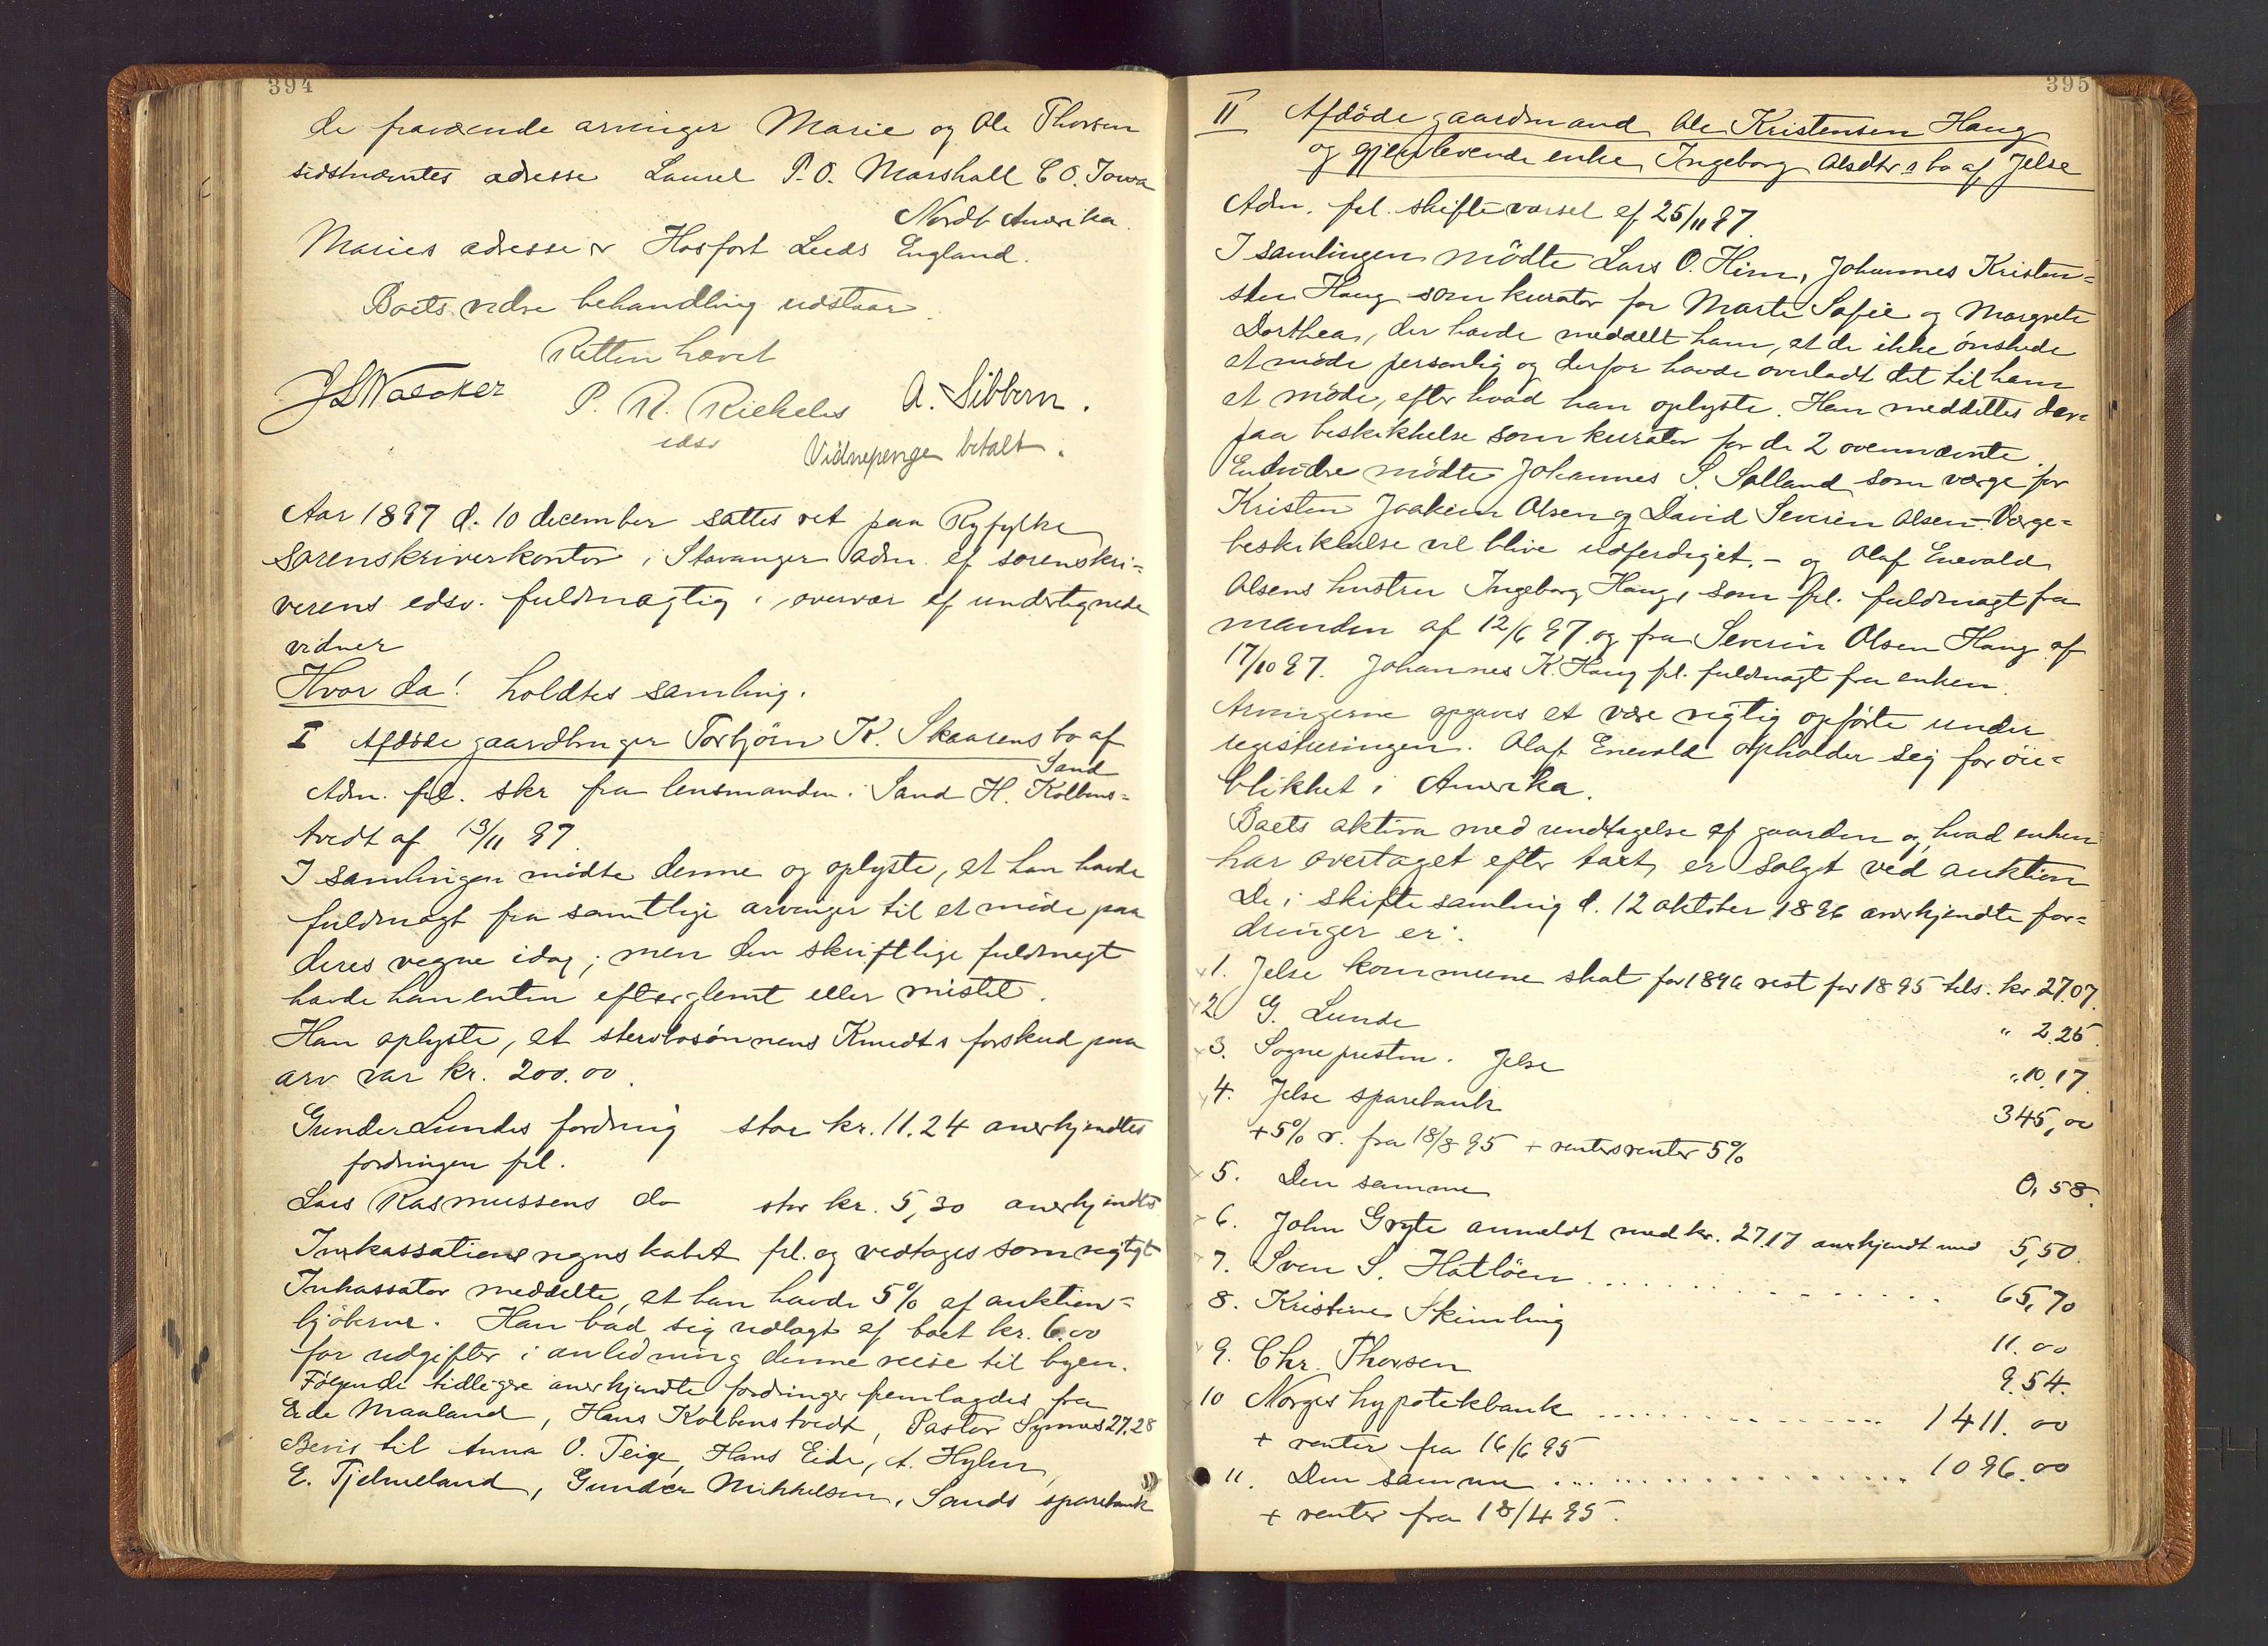 394
de fraværende arvinger Marie og Ole Thorsen
sidstnævntes adresse Laurel P.O. Marshall C O. Iowa
Nordt Amerika.
Maries adresse er Hosfort Leeds England.
Boets vidre behandling udstaar.
Retten hævet
P. R. Riekeles A. Sibbern.
edsv
Vidnepenge betalt.
Aar 1897 d. 10 december sattes ret paa Ryfylke
sorenskriverkontor i Stavanger adm. af sorenskri=
verens edsv. fuldmægtig i overvær af undertegnede
vidner
Hvor da! holdtes samling.
I Afdøde gaardbruger Torbjörn K. Skaarens bo af
Sand
Adm. frl. skr fra lensmanden i Sand H. Kolbens=
tvedt af 13/11 97.
I samlingen mødte denne og oplyste, at han havde
fuldmagt fra samtlige arvinger til at møde paa
deres vegne idag; men den skriftlige fuldmagt
havde han enten efterglemt eller mistet.
Han oplyste, at stervbosönnens Knudts forskud paa
arv var kr. 200.00.
Gunder Lundes fordring stor kr. 11.24 anerkjendtes
fordringen frl.
Lars Rasmussens do stor kr. 5,30 anerkjendtes
Inkassationsregnskabet frl. og vedtages som rigtigt
Inkassator meddelte, at han havde 5% af auktion=
kjöberne. Han bad sig udlagt af boet kr. 6.00
for udgifter i anledning denne reise til byen.
Følgende tidligere anerkjendte fordringer fremlagdes fra
Eide Maaland, Hans Kolbenstvedt, Pastor Synnes 27.28
Bevis til Anna O. Teige, Hans Eide, A. Hylen,
E. Tjelmeland, Gunder Mikkelsen, Sands sparebank
395
II Afdöde gaardmand Ole Kristensen Haug
og gjenlevende enke Ingeborg Olsdtrs bo af Jelse
Adm. frl. skiftevarsel af 25/11 97.
I samlingen mödte Lars O. Hiim, Johannes Kristen=
sen Haug som kurator for Marte Sofie og Margrete
Dorthea, der havde meddelt ham, at de ikke önskede
at møde personlig og derfor havde overladt det til ham
at møde, efter hvad han oplyste. Han meddeltes der=
paa beskikkelse som kurator for de 2 ovennævnte
Endvidre mödte Johannes S. Salland som værge for
Kristen Joakim Olsen og David Severin Olsen - Værge=
beskikkelse vil blive udferdiget. - og Olaf Enevald
Olsens hustru Ingeborg Haug, som frl. fuldmagt fra
manden af 12/6 97 og fra Severin Olsen Haug af
17/10 97. Johannes K. Haug frl. fuldmagt fra enken.
Arvingerne opgaves at være rigtig opförte under
registreringen. Olaf Enevald opholder sig for öie=
blikket i Amerika.
Boets aktiva med undtagelse af gaarden og hvad enken
har overtaget efter taxt, er solgt ved auktion
De i skiftesamling d. 12 oktober 1896 anerkjendte for=
dringer er:
1. Jelse kommune skat for 1896 rest for 1895 tils. kr. 27.07.
2 G. Lunde " 2.25.
3. Sognepresten i Jelse " 10.17.
4. Jelse sparebank 345,00
+ 5% r. fra 18/8 95 + rentersrenter 5%
5. Den samme 0,58.
6. John Gryte anmeldt med kr. 27.17 anerkjendt med 5,50.
7. Sven S. Hatlöen 65,70
8. Kristine Skimling 11.00
9. Chr. Thorsen 9.54.
10 Norges hypotekbank 1411.00
+ renter fra 16/6 95
11. Den samme 1096.00
+ renter fra 18/4 95.